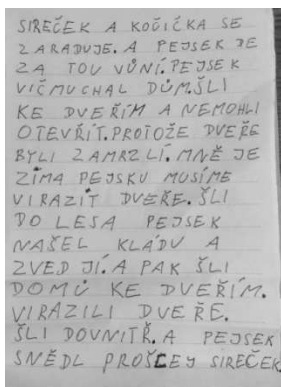 SIREČEK A KOČIČKA SE
ZARADUJE. A PEJSEK JE
ZA TOU VŮNÍ. PEJSEK
VIČMUCHAL DŮM. ŠLI
KE DVEŘÍM A NEMOHLI
OTEVŘÍT. PROTOŽE DVEŘE
BYLI ZAMRZLÍ. MNĚ JE
ZÍMA PEJSKU MUSÍME
VIRAZIT DVEŘE. ŠLI
DO LESA PEJSEK
NAŠEL KLÁDU A
ZVED JÍ. A PAK ŠLI
DOMŮ KE DVEŘÍM.
VIRÁZILI DVEŘE.
ŠLI DOVNITŘ. A PEJSEK
SNĚDL PROŠLEJ SIREČEK